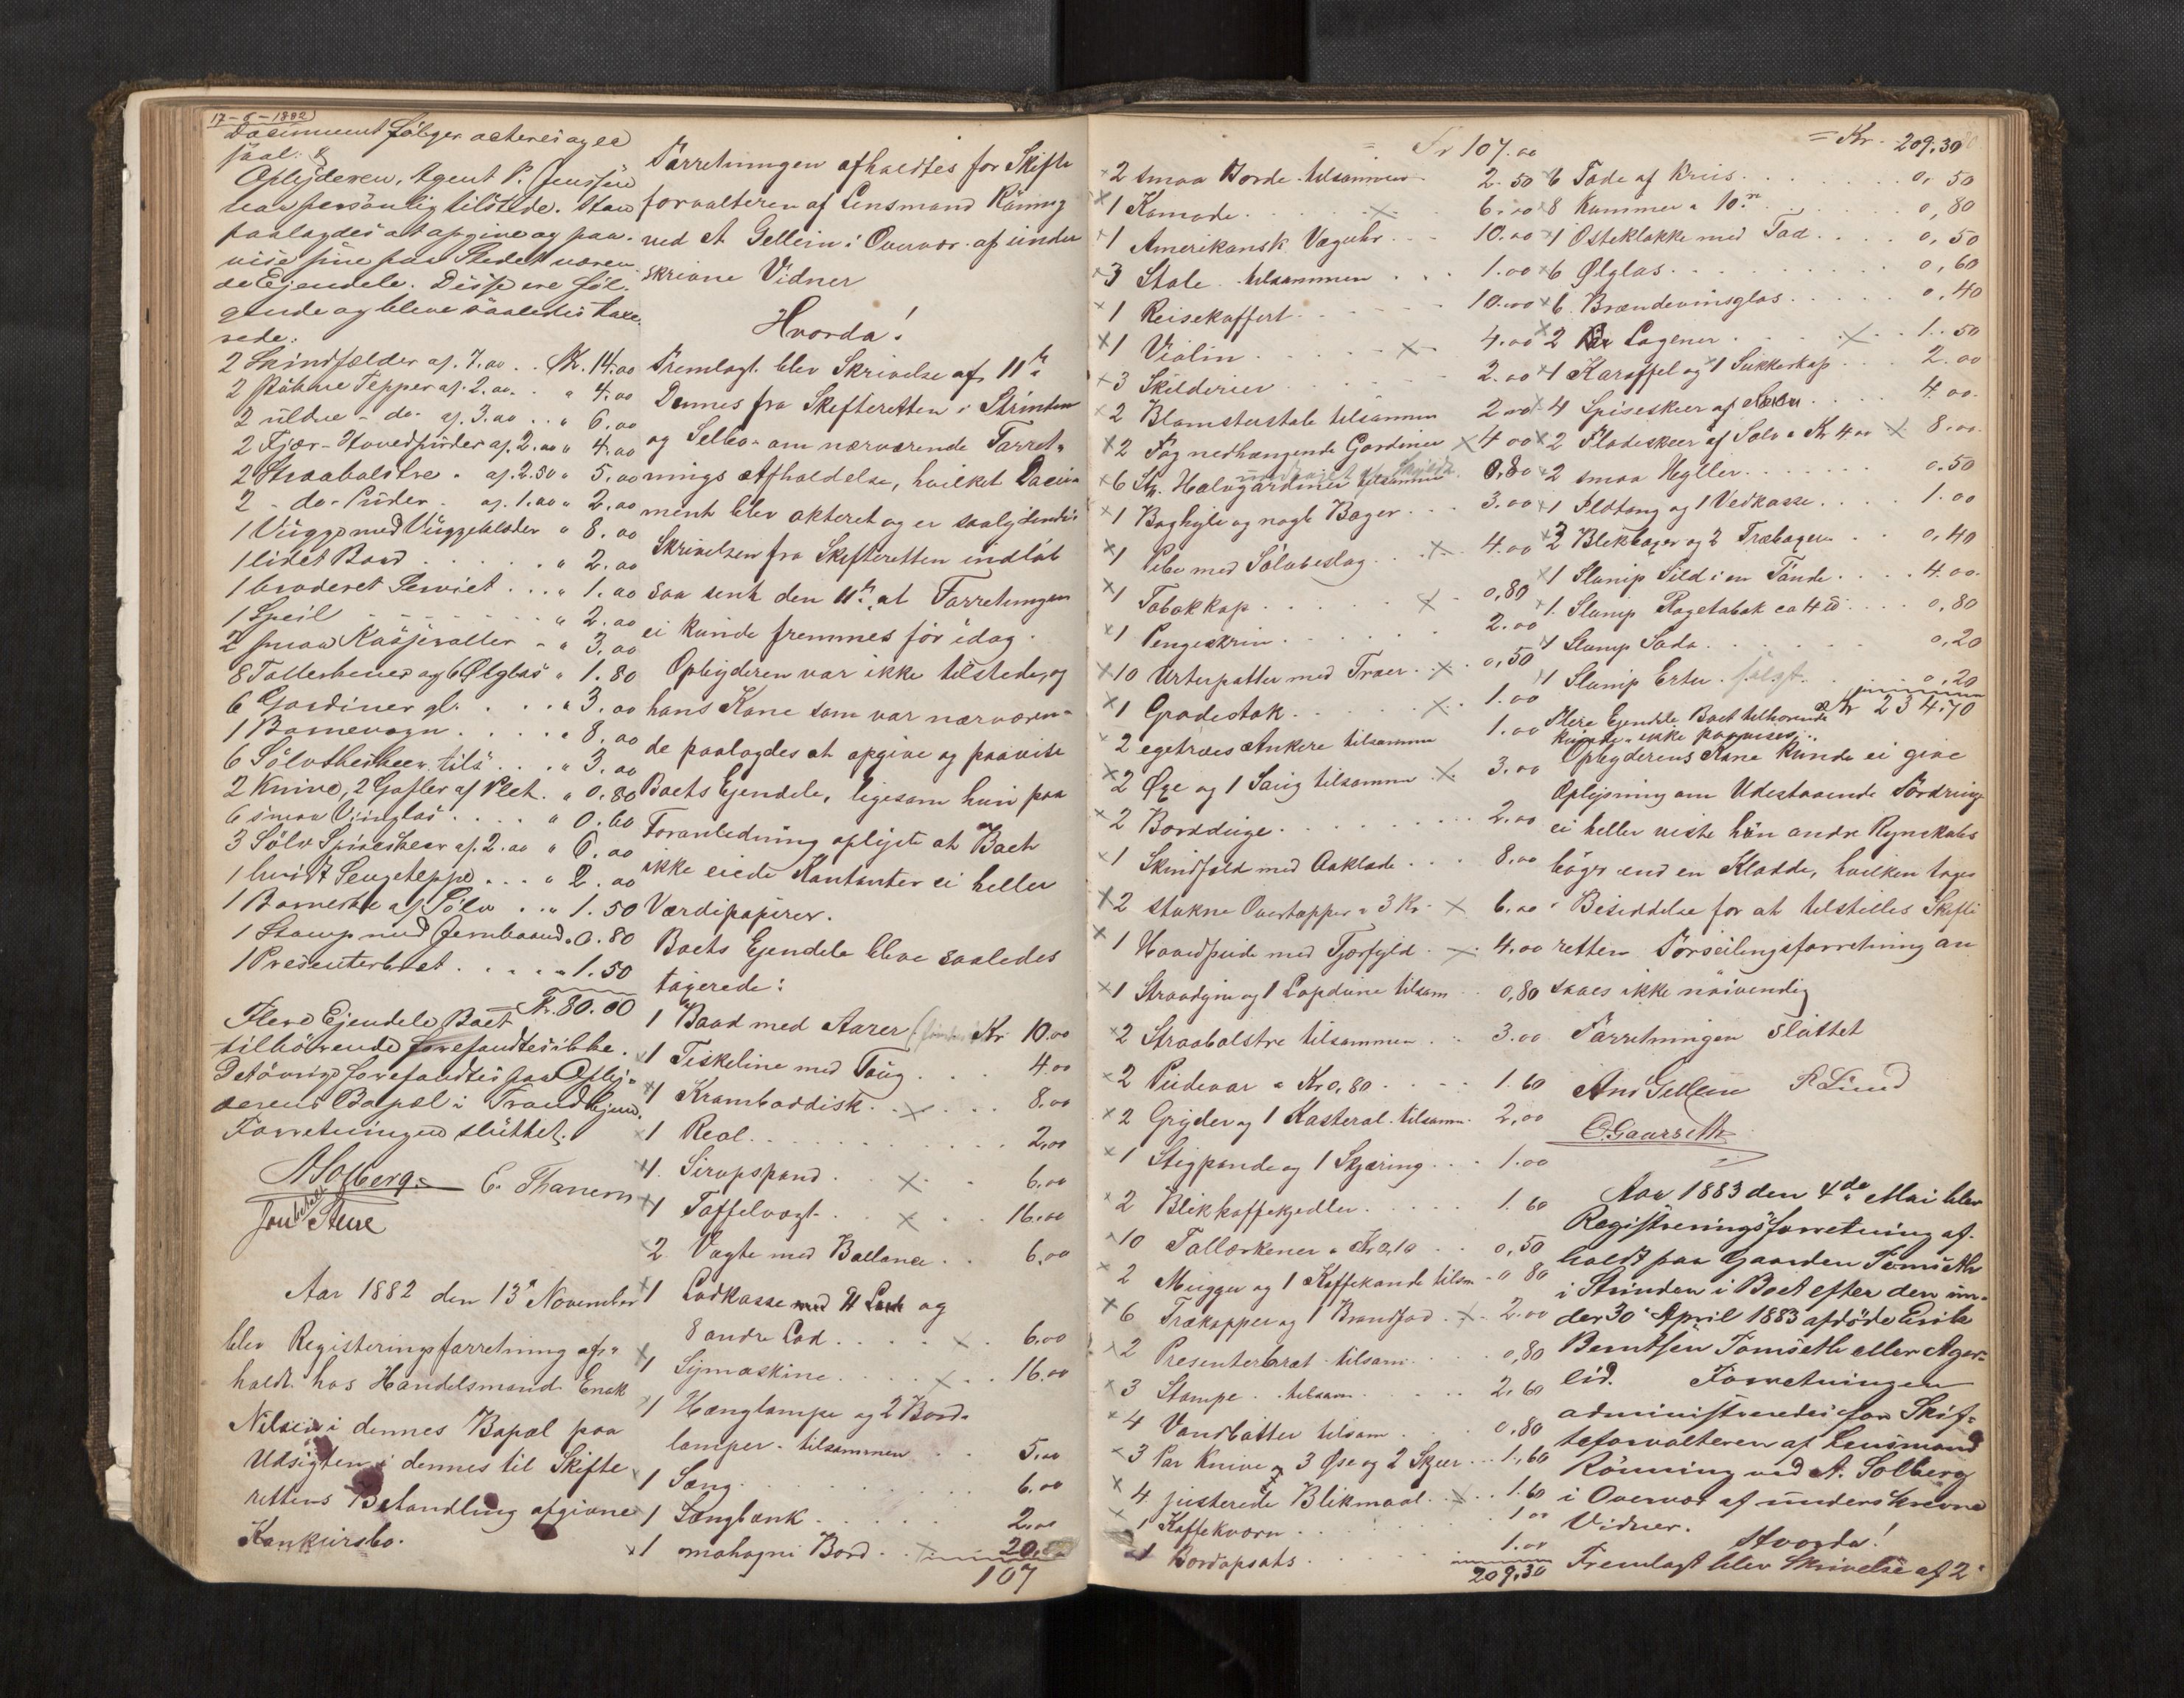 17-6-1882
Document følger acteres og er
saal. &
Opbyderen, Agent P. Jenssen
var personlig tilstede. Han
paalagdes at opgive og paa-
vise sine paa Stedet væren-
de Ejendele. Disse ere føl-
gende og bleve saaledes taxe-
rede:
2 Skindfælder a/. 7.00 . . Kr. 14.00
2 Tepper a/. 2.00. . " 4.00
2 uldne - do- a/. 3.00 . . " 6.00
2 Fjær-Hovedpuder a/. 2.00 " 4.00
2 Straabolstre " a/. 2.50 " 5.00
2 - do- Puder a/. 1.00 " 2.00
1 Vugge med Vuggeklæder " 8.00
1 lidet Bord . . . . " 2.00
1 broderet Serviet . . . " 1.00
1 Speil . . . . " 2.00
2 smaa Kasseroller - " 3.00
8 Tallerkener og 6 Ølglas " 1.80
6 Gardiner gl. . . . " 3.00
1 Barnevogn . . . . . " 8.00
6 Sölvtheskeer, tils. . . " 3.00
2 Knive, 2 Gafler af Plet. " 0.80
6 smaa Vinglas . . . . " 0.60
3 Sölv Spiseskeer a/. 2.00 " 6.00
1 hvidt Sengeteppe . . . " 2.00
1 Barneske af Sölv . . " 1.50
1 Stamp med Jernbaand " 0.80
1 Presenterbret . . . . . " 1.50
Kr. 80.00
Flere Ejendele Boet
tilhørende forefandtes ikke.
Det övrige forefandtes paa Opby-
derens Bopæl i Trondhjem.
Forretningen sluttet.
A Solberg E. Thanem
Jon Stene
Aar 1882 den 13' November
blev Registeringsforretning af-
holdt hos Handelsmand Enok
Nilsen i dennes Bopæl paa
Udsigten i dennes til Skifte
rettens Behandling afgivne
Konkursbo.
Forretningen afholdtes for Skifte
forvalteren af Lensmand Rønning
ved A Gellein i Overvær af under
skrevne Vidner
Hvorda!
Fremlagt blev Skrivelse af 11te
Dennes fra Skifteretten i Strinden
og Selbo om nærværende Forret-
nings Afholdelse, hvilket Docu-
ment blev akteret og er saalydende
Skrivelsen fra Skifteretten indløb
saa sent den 11te, at Forretningen
ei kunde fremmes för idag.
Opbyderen var ikke tilstede, og
hans Kone som var nærværen-
de paalagdes at opgive og paavise
Boets Ejendele, ligesom hun paa
Foranledning oplyste at Boet
ikke eiede Kontanter ei heller
Værdipapirer.
Boets Ejendele bleve saaledes
taxerede:
1 Baad med Aarer Kr 10.00
1 Fiskeline med Taug . . . 4.00
1 Kramboddisk . . . 8.00
1 Reol . . . 2.00
4. Sirupspand . . . 6.00
1 Taffelvægt . . . 16.00
2. Vægte med Ballance . . 6.00
1 Lodkasse med 11 Lod og
8 andre Lod . . . 6.00
1 Symaskine . . . 16.00
1 Hænglampe og 2 Bord-
lamper - tilsammen . . 5.00
1 Seng . . . 6.00
1 Sengbænk . . . 2.00
1 mahogni Bord . . 20.00
107
Fr 107.00
2 smaa Borde tilsammen 2.50
1 Komode . . . 6.00
1 Amerikansk Vægguhr . . - 10.00
3 Stole . tilsammen . . . 1.00
1 Reisekoffert . . . 10.00
1 Violin . . . 4.00
3 Skilderier . . . 2.00
2 Blomsterstole tilsammen 2.00
2 Fag nedhængende Gardiner 4.00
6 Stk. Halvgardiner tilsammen 0,80
1 Boghylde og nogle Bøger . . . 3.00
1 Pibe med Sølvbeslag . . . 4.00
1 Tobakkop . . . 0,80
1 Pengeskrin . . . 2.00
10 Urtepotter med Træer . . 0,50
1 Grødestok . . . 1.00
2 egetræes Ankere tilsammen 1.00
2 Øxe og 1 Saug tilsammen . 3.00
2 Bordduge . . . 2.00
1 Skindfeld med Aaklæde . . . 8.00
2 stukne Overtepper a 3 Kr 6.00
1 Hovedpude med Fjærfyld . 4.00
1 Straadyne og 1 Lopdune tilsam 0,80
2 Straabolstre tilsammen . . 3.00
2 Pudevar a Kr 0,80 . . . 1.60
2 Gryder og 1 Kasterol tilsamm. 2,00
1 Stegpande og 1 Skjæring . . . 1.00
2 Blikkaffekjedler . . . 1.60
10 Tallerkener a Kr 0,10 . . 0,50
2 Mugger og 1 Kaffekande tilsm - 0 80
6 Trækopper og 1 Brændfad . 2.00
2 Presenterbræt - tilsam . . 0,80
3 Stampe . tilsam . . . 2.60
4 Vandbøtter tilsam . . 0,80
3 Par Knive og 3 Øse og 2 Skjeer . . 1.60
4 justerede Blikmaal . . . 1.60
1 Kaffekværn . . . 1 00
1 Bordopsats . . . 1.00
209,30
= Kr. 209.30
6 Fade af Kruis . . . 0,50
8 Kummer a 10 . . . 0,80
1 Osteklokke med Fad . . . 0,50
6 Ølglas . . . 0,60
6 Brændevinsglas . . . 0,40
2 Lagener . . . 1.50
1 Karaffel og 1 Sukkerkop . . . 2.00
4 Spiseskeer af . . . 4.00
2 Flødeskeer af Sølv a Kr 4 00 8.00
2 smaa Hyller . . . 0.50
1 Ildtang og 1 Vedkasse . . . 1.00
2 Blikbøger og 2 Træbøger . . 0,40
1 Slump Sild i en Tønde . . . 4.00
1. Slump Røgetobak ca 4 ℔ . . . 0,80
1 Slump Soda . . . 0,20
1 Slump Erter . solgt . . 0,20
Kr 234,70
Flere Ejendele Boet tilhørende
kunde ikke paavises.
Opbyderens Kone kunde ei give
Oplysning om Udestaaende Fordringer
ei heller viste hun andre Regnskabs
bøger end en Kladde, hvilken tages
i Besiddelse for at tilstilles Skifte
retten Forseilingsforretning an
saaes ikke nöivendig
Forretningen sluttet
And Gellein P. Lund
O. Gaarseth
Aar 1883 den 4de Mai blev
Registreringsforretning af-
holdt paa Gaarden Tomseth
i Strinden i Boet efter den un-
der 30' April 1883 afdöde Erik
Berntsen Tomseth eller Ager-
lid. Forretningen
administreredes for Skif-
teforvalteren af Lensmand
Rönning ved A. Solberg
i Overvær af underskrevne
Vidner.
Hvorda!
Fremlagt blev Skrivelse af 2'